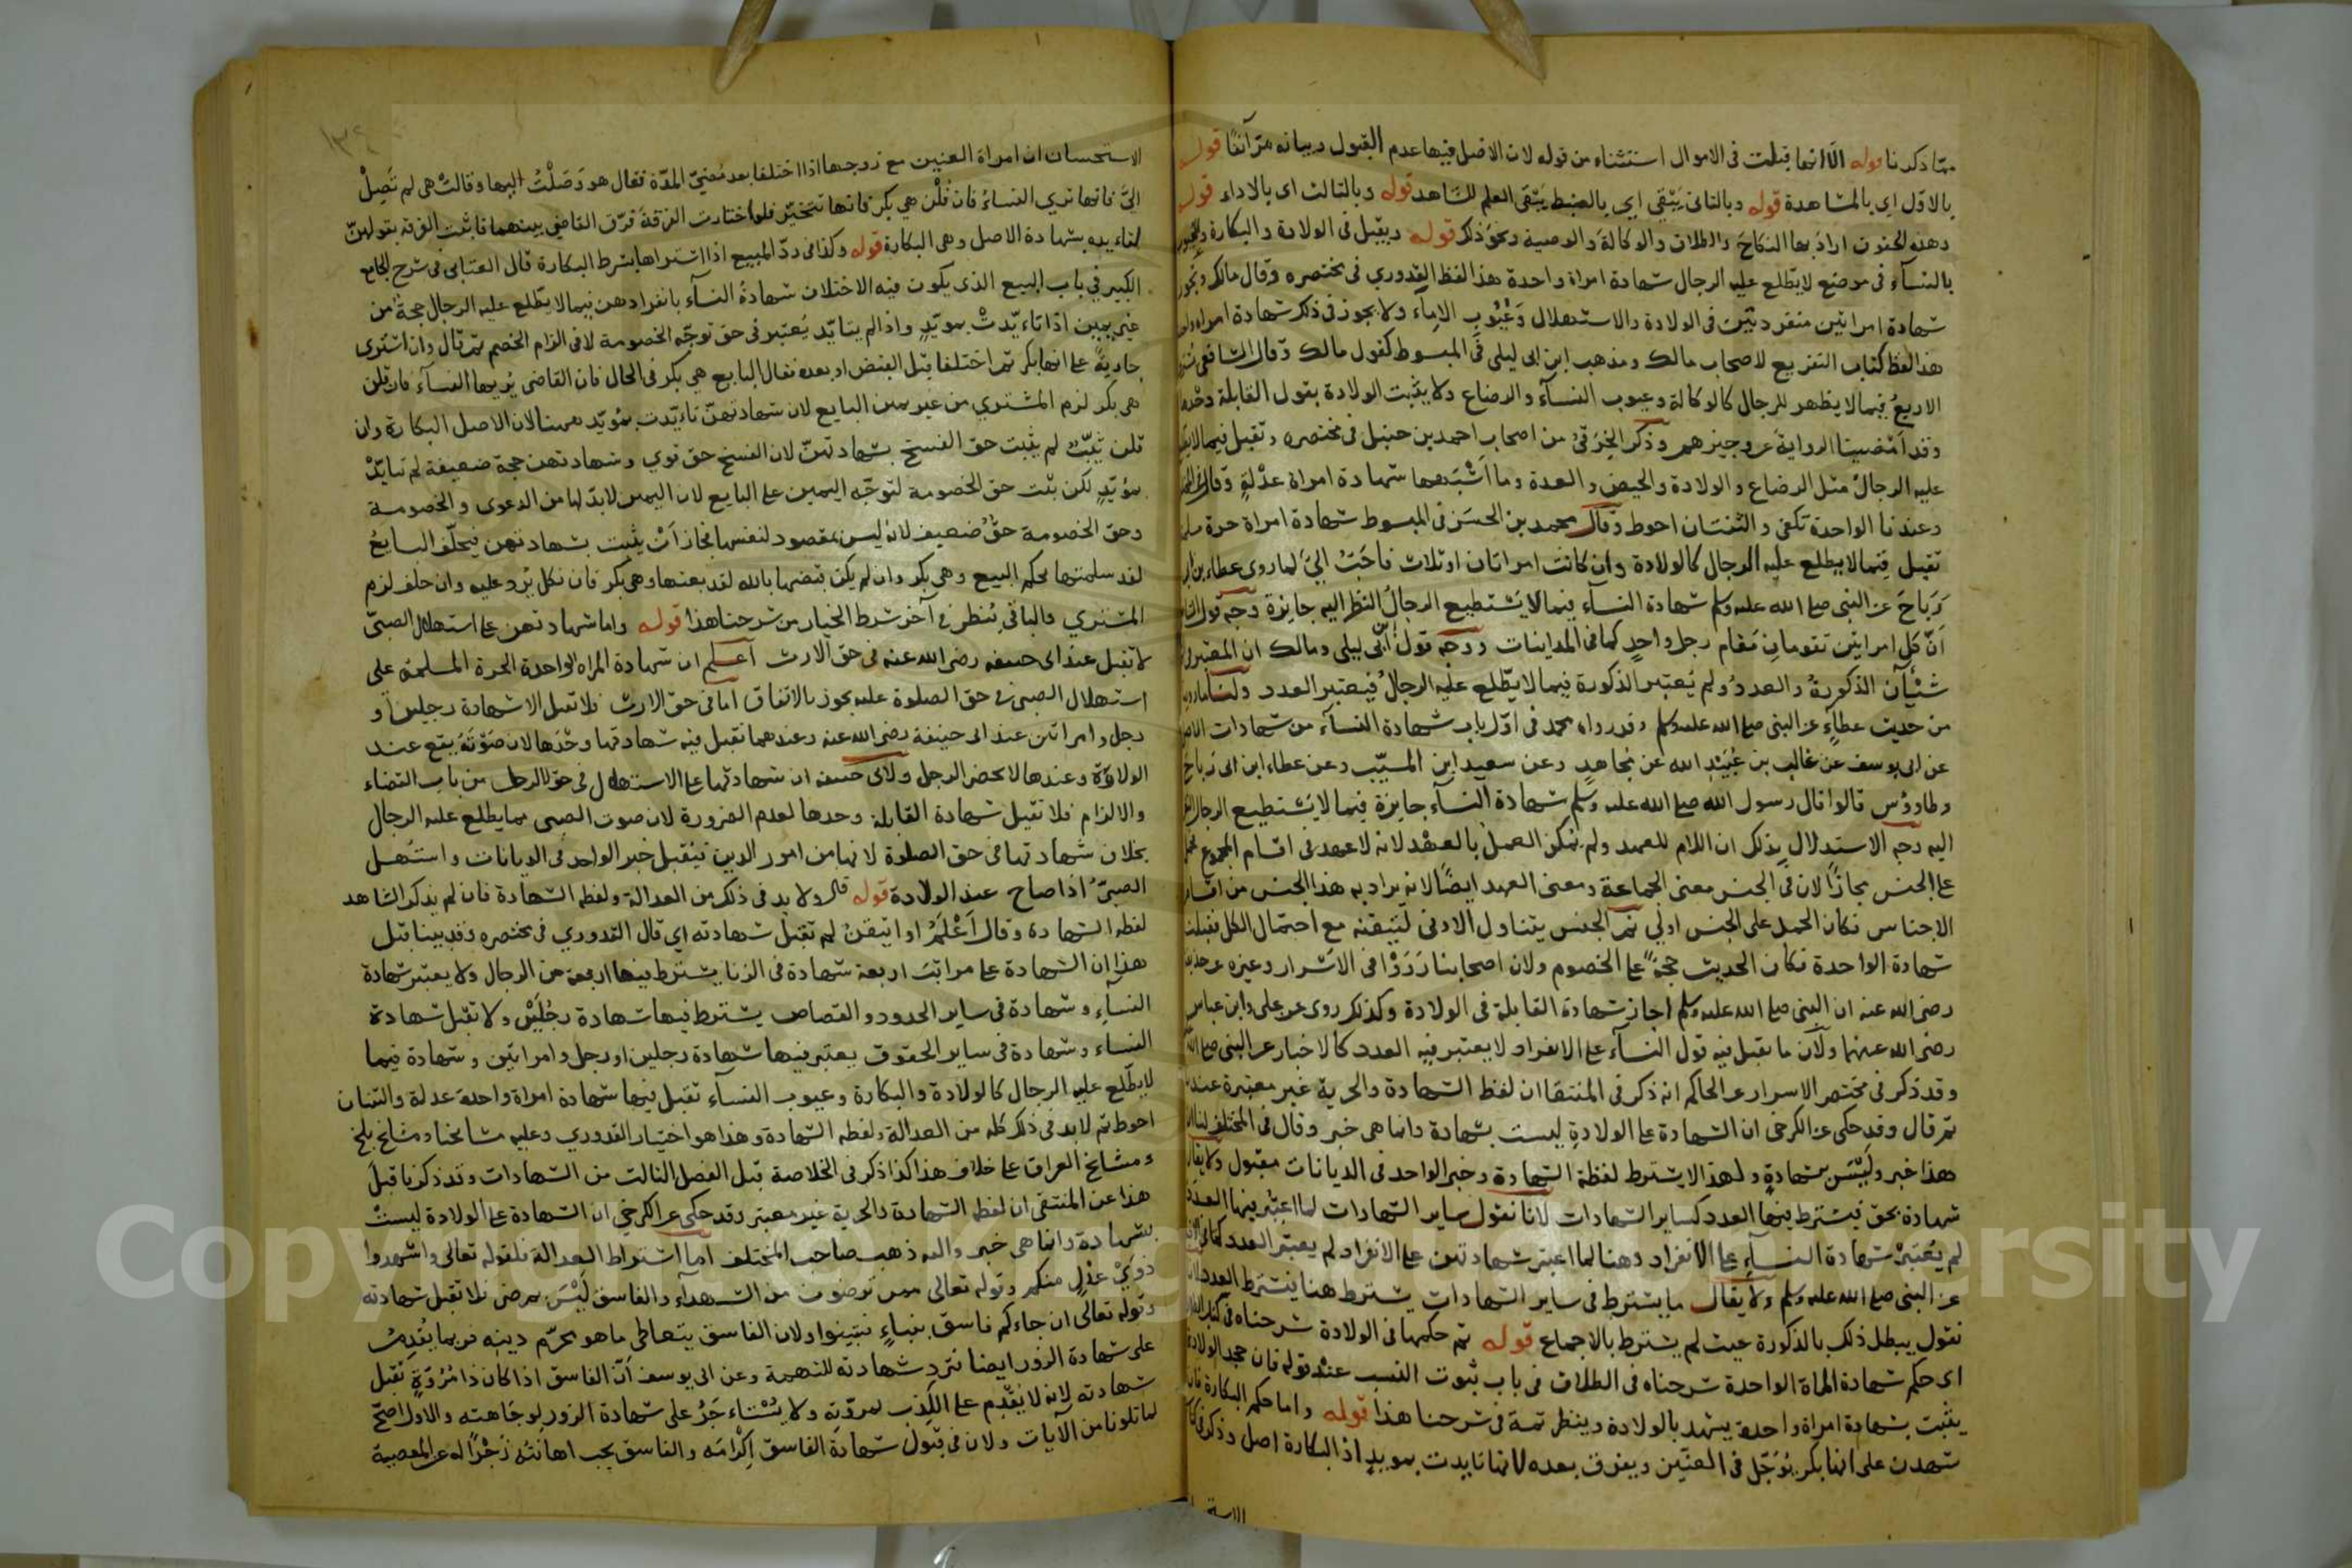 مما ذكرنا قوله الا انها قبلت فى الاموال استثناء من قوله لان الاصل فيها عدم القبول وبيانه مرّ آنفًا قوله
بالاوّل اى بالمشاهدة قوله وبالثانى يَبْقى اى بالضبط يَبْقَى العلم للشاهد قوله وبالثالث اى بالاداء قوله
وهذه الحقوق اراد بها النكاحَ والطلاق والوكالةَ والوصية ونحوَ ذلك قوله ويقبل فى الولادة والبكارة والعيوب
بالنسآء فى موضع لا يطّلع عليه الرجال شهادة امراة واحدة هذا لفظ القدوري فى مختصره وقال مالك يجوز
شهادة امراتين منفردتين فى الولادة والاستهلال وَعُيُوب الامآء ولا يجوز فى ذكر شهادة امراة واحدة
هذا لفظ كتاب التفريع لاصحاب مالك ومذهب ابن ابى ليلى فى المبسوط كقول مالك وقال الشافعى يُشترط
الاربعُ فيما لا يظهر للرجال كالوكالة وعيوب النسآء والرضاع ولا يثبت الولادة بقول القابلة وحْدها
وقد امْضينا الروايةَ عن وجيزهم وذكر الخِرَقىُّ من اصحاب احمد بن حنبل فى مختصره وتقبل فيما لا يطلع
عليه الرجالُ مثل الرضاع والولادة والحيض والعدة وما اَشْبَهها شهادة امراة عدْلةٍ وقال
وعندنا الواحدة تكفى والثنتان احوط وقال محمد بن الحسَن فى المبسوط شهادة امراة حرة مسلمة
تقبل فيما لا يطلع عليه الرجال كالولادة وان كانت امراتان او ثلاث فاحَبّ اليَّ لما روى عطاء بن ابى
رَبَاحَ عن النبى صلى الله عليه وسلم شهادة النسآء فيما لا يَسْتطيع الرجالُ النظر اليه جايزة وجه قول
اَنّ كل امراتين تقومان مَقام رجل واحدٍ كما فى المداينات ووجه قول ابن ابى ليلى ومالك ان المعتبر
شَيْئان الذكورةُ والعددُ ولم يُعتبر الذكورة فيما لا يطّلع عليه الرجالُ فيعتبر العدد ولنا ما روينا
من حديث عطآءٍ عن النبى صلى الله عليه وسلم وقد رواه محمد فى اوّل باب شهادة النسآء من شهادات الاصل
عن ابى يوسف عن غالب بن عُبَيْد الله عن مُجاهدٍ وعن سعيد ابن المسيّب وعن عطاء ابن ابى رَباح
وطاووُس قالوا قال رسول الله صلى الله عليه وسَلم شهادة النسآء جايزة فيما لا يَسْتطيع الرجال النظر
اليه وجه الاستدلال بذلك ان اللام للعهد ولم يمكن العمل بالعهْد لانه لا عهد فى اقسام الجموع فحمل
على الجنس مجازًا لان فى الجنس معنى الجماعة ومعنى العهد ايضًا لانه يراد به هذا الجنس من اقسام
الاجناس فكان الحمل على الجنس اولي ثم الجنس يتناول الادنى لتيقنه مع احتمال الكل فقبلت
شهادة الواحدة فكان الحديث حجةً على الخصوم ولان اصحابنا رَوَوْا فى الاَسْرار وغيره عن حذيفة
رضى الله عنه ان النبى صلى الله عليه وسلم اجاز شهادة القابلة فى الولادة وكذلك روى عن على وابن عباس
رضى الله عنهما ولان ما يقبل فيه قول النسآء على الانفراد لا يعتبر فيه العدد كالاخبار عن النبى صلى الله
وقد ذكر فى مختصر الاسرار عن الحاكم انه ذكر فى المنتقا ان لفظ الشهادة والحرية غير معتبرة عنده
ثم قال وقد حكى عن الكرخى ان الشهادة على الولادة ليست بشهادة وانما هى خبر وقال فى المختلف لنا ان
هذا خبر ولَيْسَ بشهادةٍ ولهذا لا يشترط لفظة الشهادة وخبر الواحد فى الديانات مقبول ولا يقال
شهادة بحق فيشترط فيها العدد كساير الشهادات لانا نقول ساير الشهادات لما اعتُبِر فيها العدد
لم يُعْتَبَرْ شهادة النسآء على الانفراد وهنا لما اعتبر شهادتهن على الانفراد لم يعتبر العدد كما فى
عن النبى صلى الله عليه وسلم ولا يقال ما يشترط فى ساير الشهادات يشترط هنا فيشترط العدد لانا
نقول يبطل ذلك بالذكورة حيث لم يشترط بالاجماع قوله ثم حكمها فى الولادة شرحناه فى كتاب الطلاق
اى حكم شهادة المراة الواحدة شرحناه فى الطلاق فى باب ثبوت النسب عنْد قوله فان جحد الولادة
يثبت بشهادة امراة واحدة يشهد بالولادة وينظر ثمة فى شرحنا هذا قوله واما حكم البكارة فان
شهدن على انها بكر يُوَجَّل فى العنّين ويفرق بعده لانها تايدت بمويدٍ اذ البكارة اصل وذكر فى
الاستـ
الاستحسان ان امراة العنين مع زوجها اذا اختلفا بعد مُضيّ المدّة فقال هو وَصَلْتُ اليها وقالتْ هى لم تصِلْ
اليّ فانها تُري النساءُ فان قلْن هى بكر فانها تتخيّر فلو اختارت الفرقةَ فرّق القاضى بينهما فاثبت الفرقة بقولهنّ
لتاييده بشهادة الاصل وهى البكارة قوله وكذا فى ردّ المبيع اذا اشتراها بشرط البكارة قال العتّابى فى شرح الجامع
الكبير فى باب البيع الذى يكون فيه الاختلاف شهادةُ النسآء بانفرادهن فيما لا يطّلع عليه الرجال حجةٌ من
غير يمين اذا تاءيّدتْ بمويّدٍ واذا لم يتايّد يُعتبر فى حق توجّه الخصومة لا فى الزام الخصم ثم قال وان اشترى
جاريةً على انها بكر ثم اختلفا قبل القبض او بعده فقال البايع هى بكر فى الحال فان القاضى يُريها النسآء فان قلن
هى بكر لزم المشتري من غير يمين البايع لان شهادتهنّ تاءيّدت بمؤيّد ههنا لان الاصل البكارة وان
قلن ثيّبٌ لم يثبت حق الفسخ بشهادتهنّ لان الفسخ حق قوي وشهادتهن حجة ضعيفة لم تتايّدْ
بمؤيّدٍ لكن يثبت حق الخصومة لتوجّه اليمين على البايع لان اليمين لابدّ لها من الدعوى والخصومة
وحق الخصومة حقٌ ضعيف لانه ليس بمقصود لنفسها فجاز اَنْ يثبت بشهادتهن فيحلّف البايعُ
لقد سلمتها بحكم البيع وهى بكر وان لم يكن قبضها بالله لقد بعتها وهى بكر فان نكل يُرد عليه وان حلف لزم
المشتري والباقى يُنظر فى آخر شرط الخيار من شرحنا هذا قوله واما شهادتهن على استهلال الصبىّ
لا تقبل عند ابى حنيفة رضى الله عنه فى حق الارث اعلم ان شهادة المراة الواحدة الحرة المسلمة على
استهلال الصبى فى حق الصلوة عليه يجوز بالاتفاق اما فى حق الارث فلا تقبل الا شهادة رجلين او
رجل وامراتين عند ابى حنيفة رضى الله عنه وعندهما تقبل فيه شهادتها وحْدَها لان صَوْتَهُ يقع عند
الولادة وعندها لا يحضر الرجل ولابى حنيفة ان شهادتها على الاستهلال فى حق الرجل من باب القضاء
والالزام فلا تقبل شهادة القابلة وحدها لعدم الضرورة لان صوت الصبى مما يطلع عليه الرجال
بخلاف شهادتها فى حق الصلوة لانها من امور الدين فيُقبل خبر الواحد فى الديانات واستهل
الصبىُّ اذا صاح عند الولادة قوله قال ولا بد فى ذلك من العدالة ولفظة الشهادة فان لم يذكر الشاهد
لفظة الشهادة وقال اَعْلَمُ او اتيقنُ لم تقبل شهادته اى قال القدوري فى مختصره وقد بينا قبل
هذا ان الشهادة على مراتبَ اربعة شهادة فى الزنا يشترط فيها اربعة من الرجال ولا يعتبر شهادة
النسآء وشهادة فى ساير الحدود والقصاص يشترط فيها شهادة رجُلَيْن ولا تقبل شهادة
النساء وشهادة فى ساير الحقوق يعتبر فيها شهادة رجلين او رجل وامراتين وشهادة فيما
لا يطّلع عليه الرجال كالولادة والبكارة وعيوب النسآء تقبل فيها شهادة امراة واحدة عدلة والثنتان
احوط ثم لا بد فى ذلك كله من العدالة ولفظة الشهادة وهذا هو اختيار القدوري وعليه مشايخنا ومشايخ بلخ
ومشايخ العراق على خلاف هذا كذا ذكر فى الخلاصة قبل الفصل الثالث من الشهادات وقد ذكرنا قبل
هذا عن المنتقى ان لفظة الشهادة والحرية غير معتبر وقد حكى عن الكرخي ان الشهادة على الولادة ليستْ
بشهادة وانما هى خبر واليه ذهب صاحب المختلف اما اشتراط العدالة فلقوله تعالى واشهدوا
ذوَيْ عدْلٍ منكم وقوله تعالى ممن ترضون من الشهدآء والفاسق لَيْسَ بمرضى فلا تقبل شهادته
وقوله تعالى ان جاءكم فاسق بنباءٍ فتبينوا ولان الفاسق يتعاطى ما هو محرّم دينه فربما يُقدِمُ
على شهادة الزور ايضا فترد شهادته للتهمة وعن ابى يوسف اَنّ الفاسق اذا كان ذا مُرُوّةٍ تقبل
شهادته لانه لا يُقْدِم على الكِذب لمروّته ولا يُسْتاءجَرُ على شهادة الزور لوجَاهته والاول اصحّ
لما تلونا من الآيات ولان فى قبول شهادة الفاسق اِكْرامَه والفاسق يجب اهانتُه زَجْرًا له عن المعصية
Copyright © King Saud University